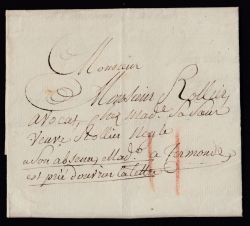 Monsieur
Monsieur Rollier,
avocat, chez mad.e sa sœur
veuve Rollier
a Son absence, Mad.e a Termonde
est prié d'ouvrir la lettre